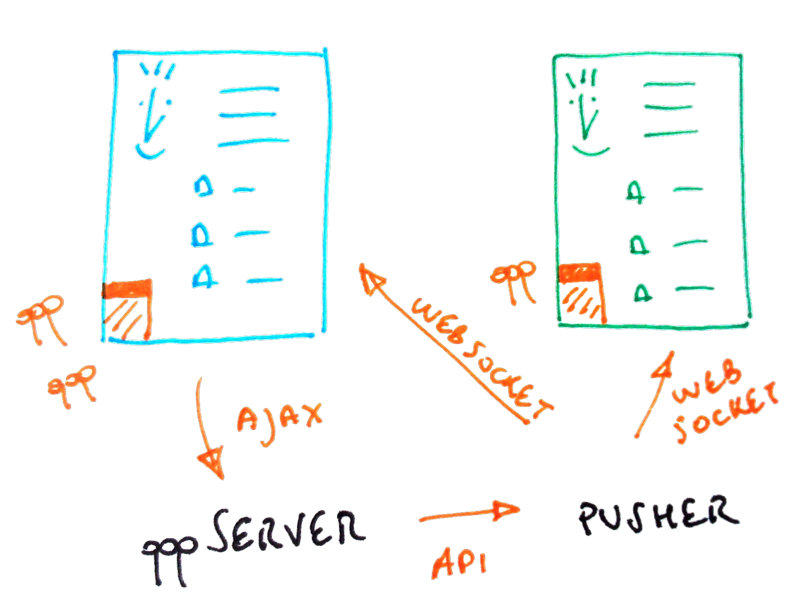 WEBSOCKET
WEB
SOCKET
AJAX
SERVER
PUSHER
API